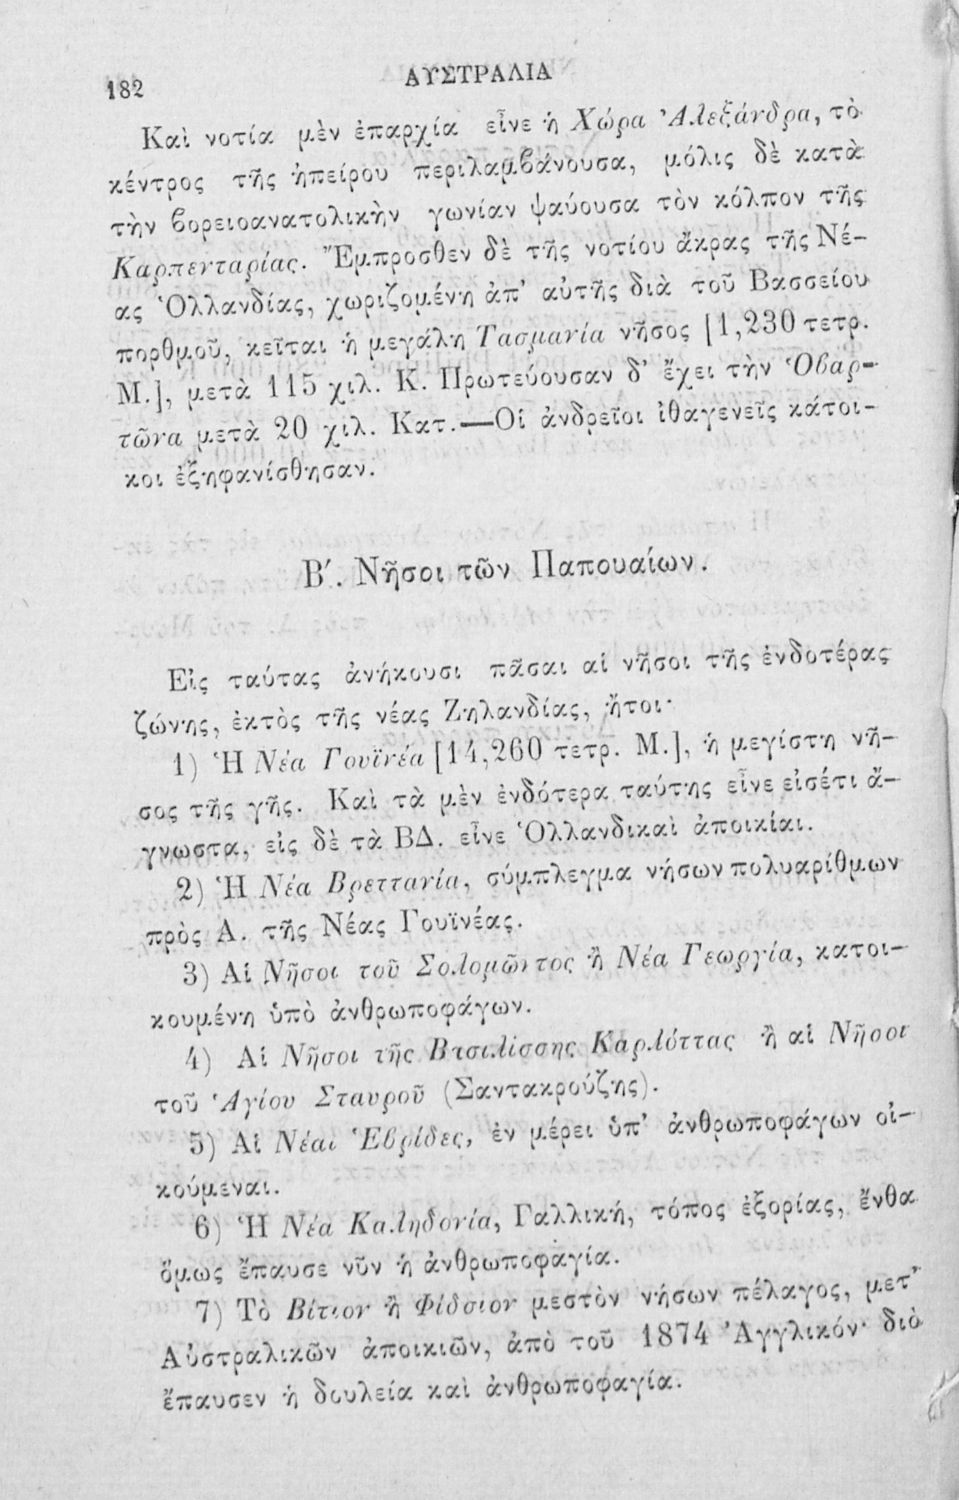 182
ΑΥΣΤΡΑΛΙΑ
Καὶ νοτία μὲν ἐπαρχία εἶνε ἡ Χώρα Ἀλεξάνδρα, τὸ
κέντρος τῆς ἠπείρου περιλαμβάνουσα, μόλις δὲ κατὰ
τὴν βορειοανατολικὴν γωνίαν ψαύουσα τὸν κόλπον τῆς
Καρπενταρίας. Ἔμπροσθεν δὲ τῆς νοτίου ἄκρας τῆς Νέ-
ας Ὁλλανδίας, χωριζομένη ἀπ’ αὐτῆς διὰ τοῦ Βασσείου
πορθμοῦ, κεῖται ἡ μεγάλη Τασμανία νῆσος [1,230 τετρ.
Μ.], μετὰ 115 χιλ. Κ. Πρωτεύουσαν δ’ ἔχει τὴν Ὁβαρ-
τῶνα μετὰ 20 χιλ. Κατ.—Οἱ ἀνδρεῖοι ἰθαγενεῖς κάτοι-
κοι ἐξηφανίσθησαν.
Β′. Νῆσοι τῶν Παπουαίων.
Εἰς ταύτας ἀνήκουσι πᾶσαι αἱ νῆσοι τῆς ἐνδοτέρας
ζώνης, ἐκτὸς τῆς νέας Ζηλανδίας, ἤτοι·
1) Ἡ Νέα Γουϊνέα [14,260 τετρ. Μ.], ἡ μεγίστη νῆ-
σος τῆς γῆς. Καὶ τὰ μὲν ἐνδότερα ταύτης εἶνε εἰσέτι ἄ-
γνωστα, εἰς δὲ τὰ ΒΔ. εἶνε Ὁλλανδικαὶ ἀποικίαι.
2) Ἡ Νέα Βρεττανία, σύμπλεγμα νήσων πολυαρίθμων
πρὸς Α. τῆς Νέας Γουϊνέας.
3) Αἱ Νῆσοι τοῦ Σολομῶντος ἢ Νέα Γεωργία, κατοι-
κουμένη ὑπὸ ἀνθρωποφάγων.
4) Αἱ Νῆσοι τῆς Βασιλίσσης Καρλόττας ἢ αἱ Νῆσοι
τοῦ Ἁγίου Σταυροῦ (Σαντακρούζης).
5) Αἱ Νέαι Ἑβρίδες, ἐν μέρει ὑπ’ ἀνθρωποφάγων οἰ-
κούμεναι.
6) Ἡ Νέα Καληδονία, Γαλλική, τόπος ἐξορίας, ἔνθα
ὅμως ἔπαυσε νῦν ἡ ἀνθρωποφαγία.
7) Τὸ Βίτιον ἢ Φίδσιον μεστὸν νήσων πέλαγος, μετ’
Αὐστραλικῶν ἀποικιῶν, ἀπὸ τοῦ 1874 Ἀγγλικόν· διὸ
ἔπαυσεν ἡ δουλεία καὶ ἀνθρωποφαγία.